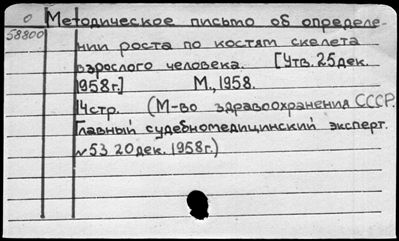 0 Методическое письмо об определе-
58800 нии роста по костям скелета
взрослого человека. [Утв. 25 дек.
1958г.] М., 1958.
14 стр. (М-во здравоохранения СССР.
Главный судебномедицинский эксперт.
№53 20 дек. 1958г.)